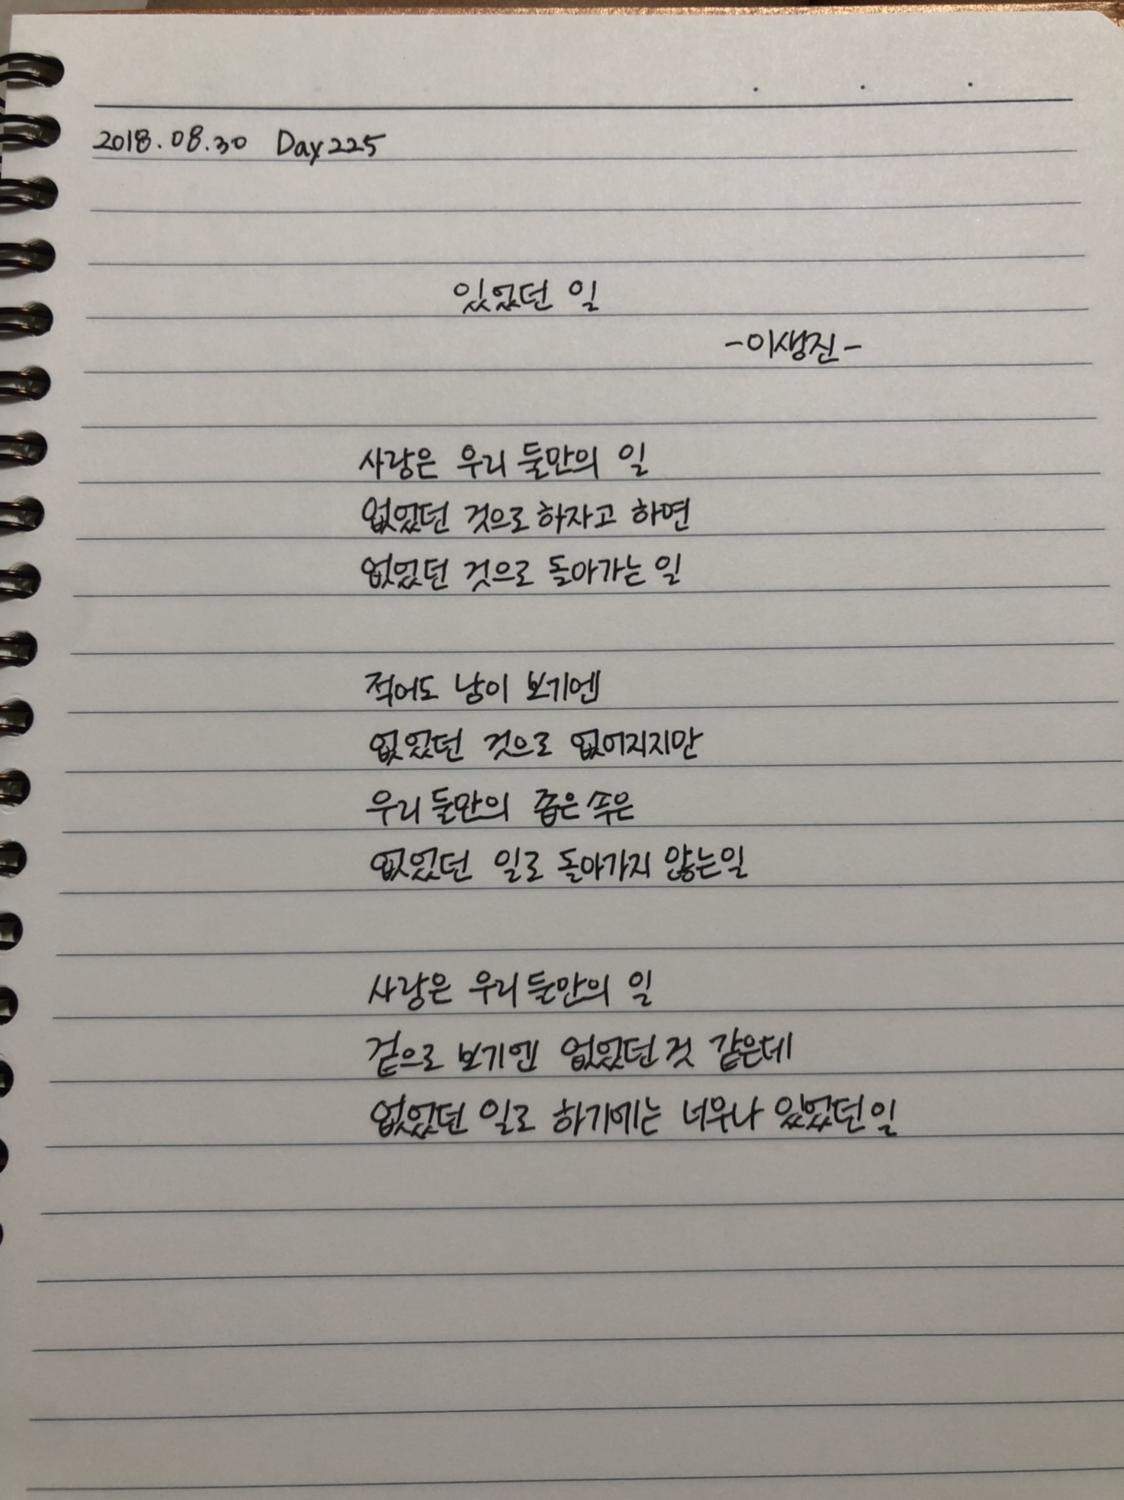 2018.08.30 Day225
있었던 일
-이생진-
사랑은 우리 둘만의 일
없었던 것으로 하자고 하면
없었던 것으로 돌아가는 일
적어도 남이 보기엔
없었던 것으로 없어지지만
우리 둘만의 좁은 속은
없었던 일로 돌아가지 않는 일
사랑은 우리 둘만의 일
겉으로 보기엔 없었던 것 같은데
없었던 일로 하기에는 너무나 있었던 일